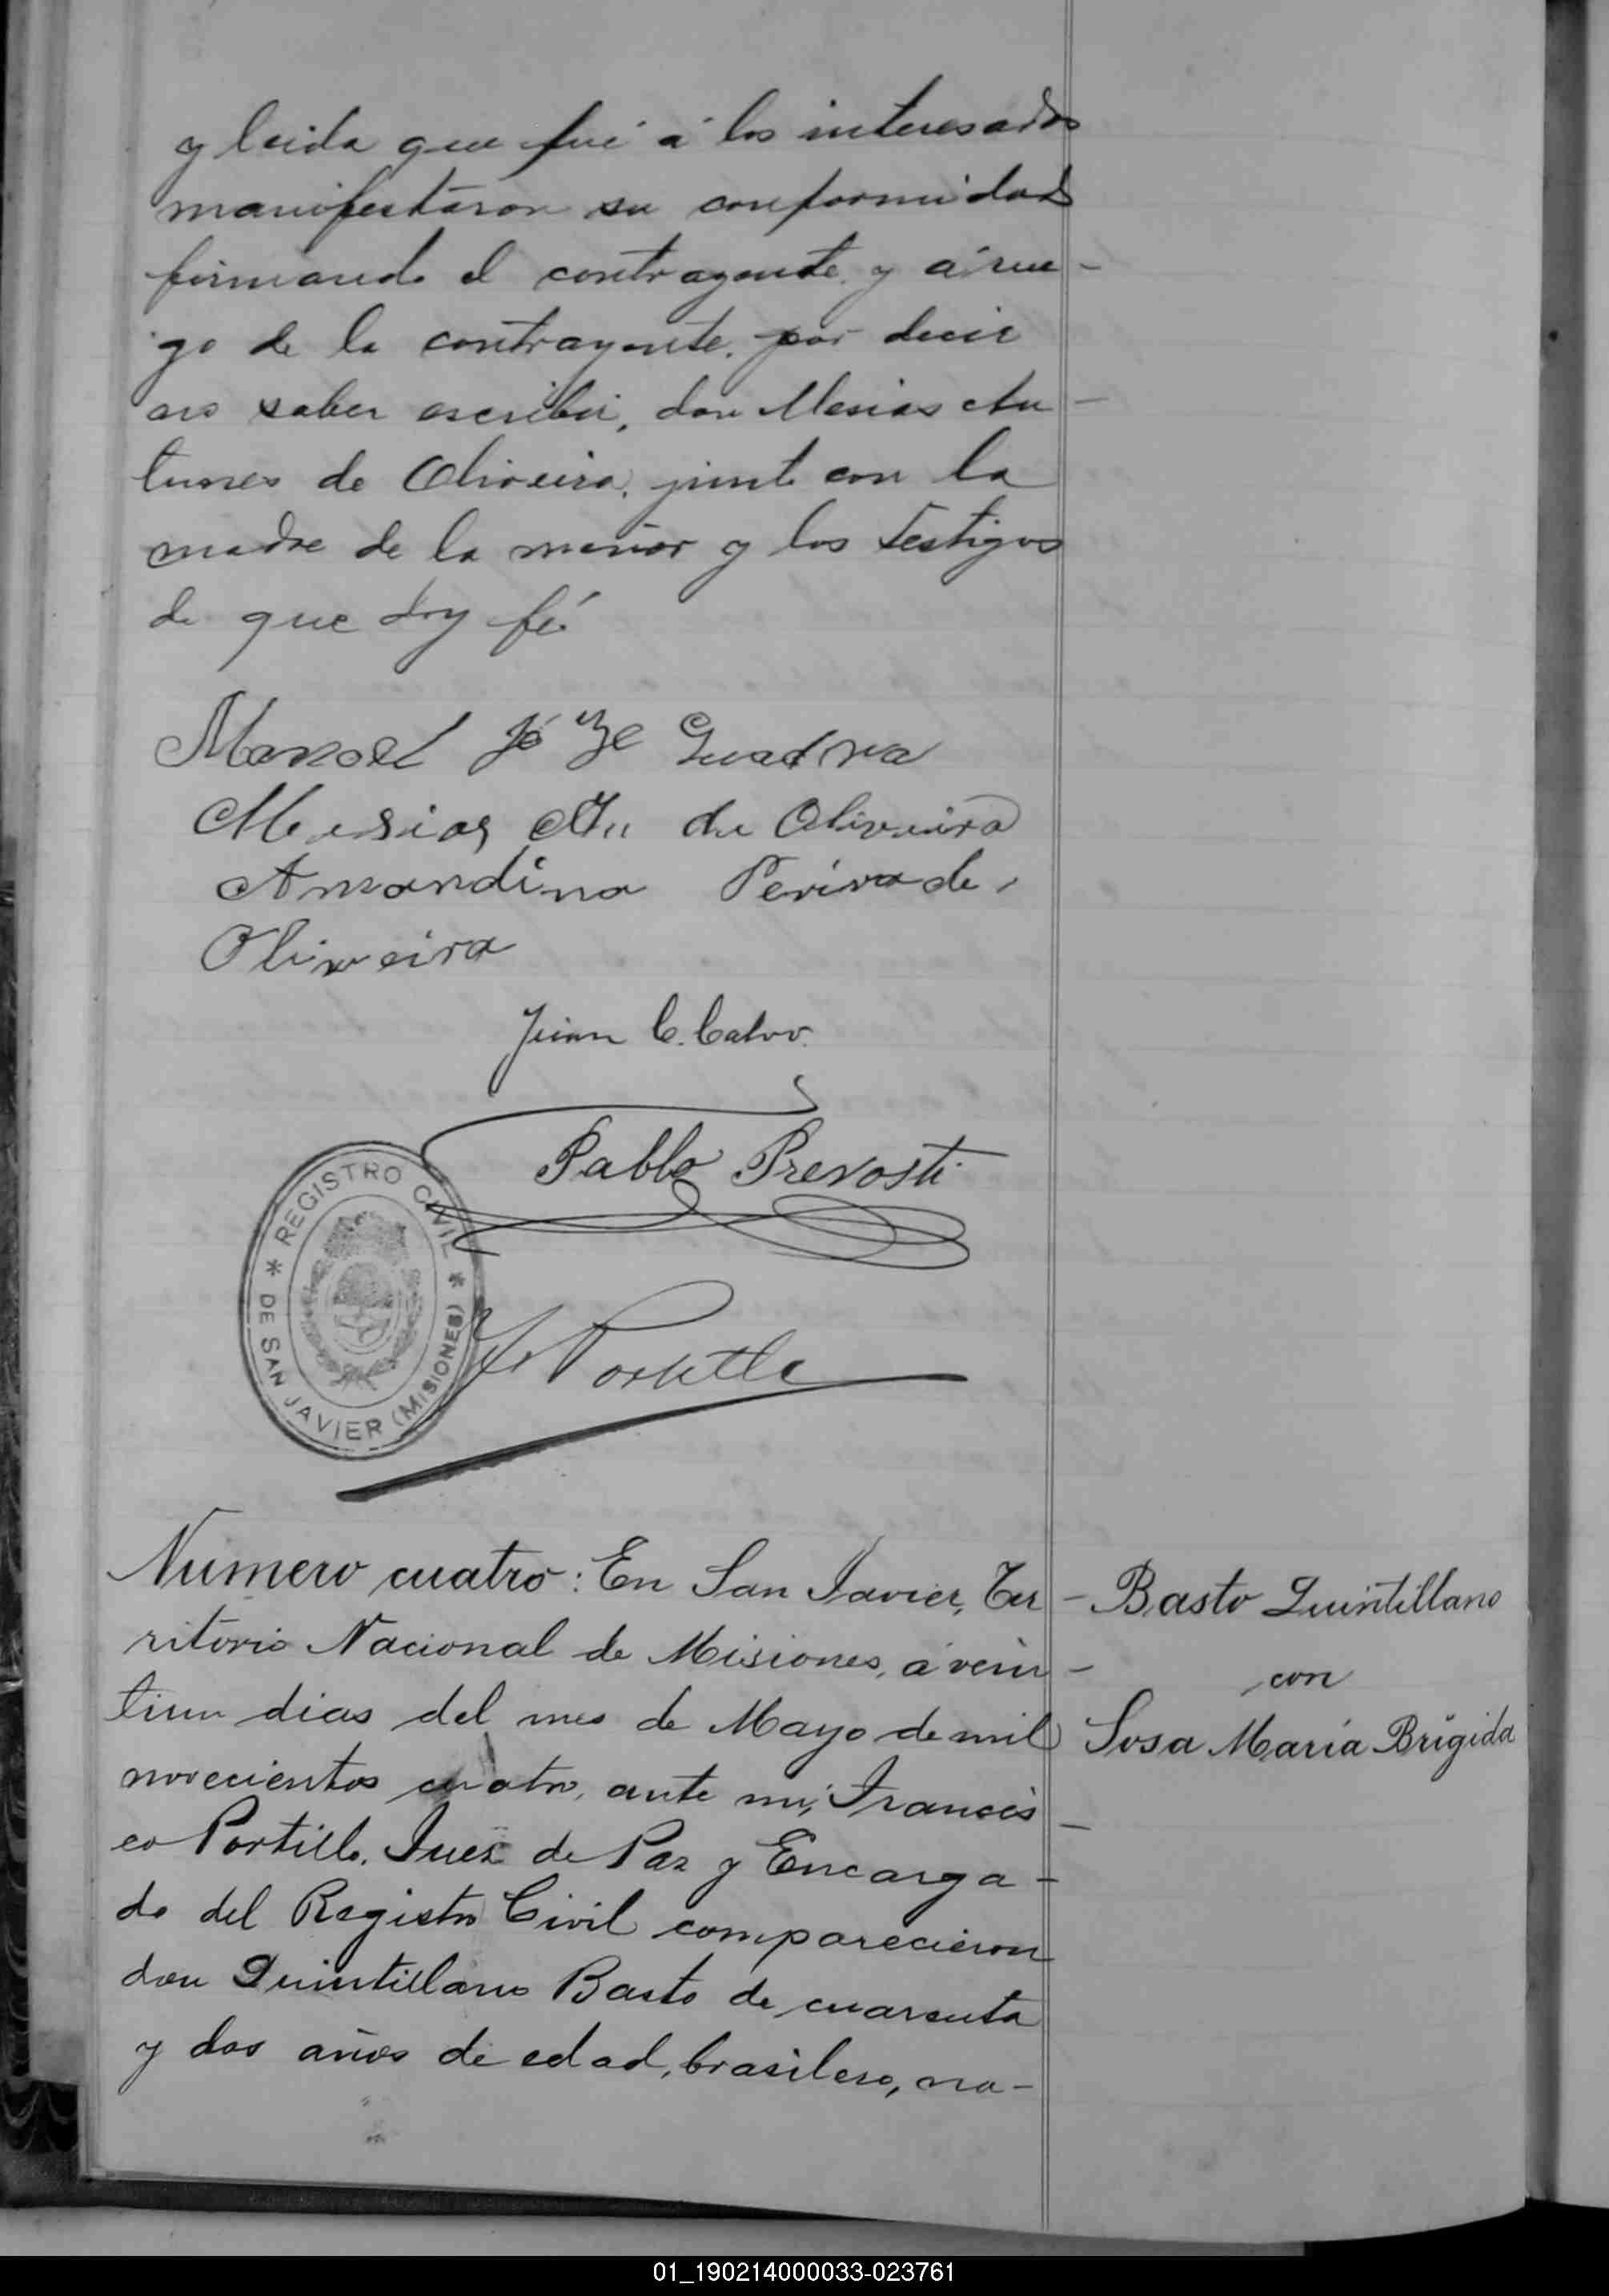 y leida que fué á los interesados
manifestaron su conformidad
firmando el contrayente y á rue-
go de la contrayente por decir
no saber escribir, don Mesias An-
tunes de Oliveira, junto con la
madre de la menor y los testigos
de que doy fé
Manoel José Quadra
Mesias An de Oliveira
Amandina Pereira de
Oliveira
Juan C. Calvo.
Pablo Prevosti
REGISTRO CIVIL
DE SAN JAVIER (MISIONES)
Portillo
Numero cuatro: En San Javier, Ter-
ritorio Nacional de Misiones, á vein-
tiun dias del mes de Mayo de mil
novecientos cuatro, ante mi, Francis-
co Portillo, Juez de Paz y Encarga-
do del Registro Civil comparecieron
don Quintillano Basto de cuarenta
y dos años de edad, brasilero, na-
Basto Quintillano
con
Sosa María Brígida
01_190214000033-023761